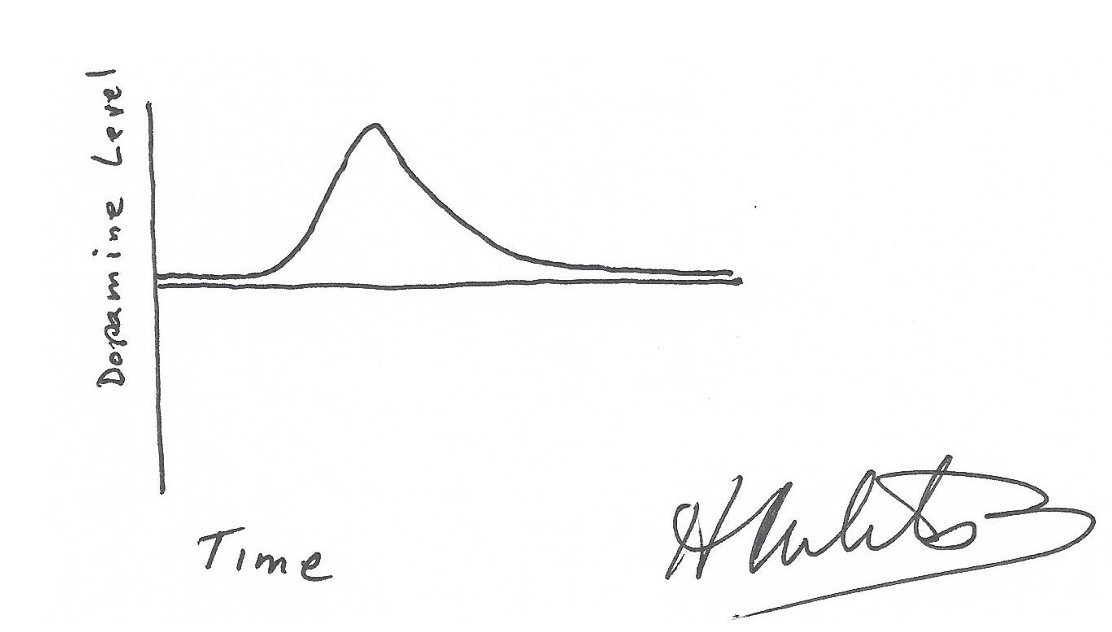 Dopamine Level
Time